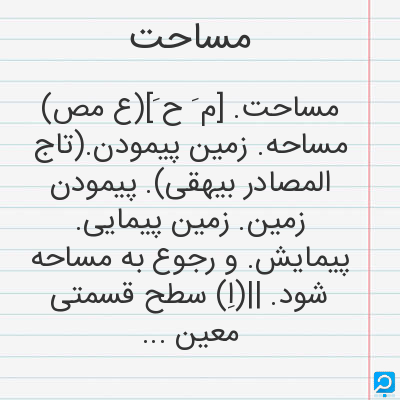 مساحت
مساحت. [م َ ح َ](ع مص)
مساحه. زمین پیمودن.(تاج
المصادر بیهقی). پیمودن
زمین. زمین پیمایی.
پیمایش. و رجوع به مساحه
شود. ||(اِ) سطح قسمتی
معین ...